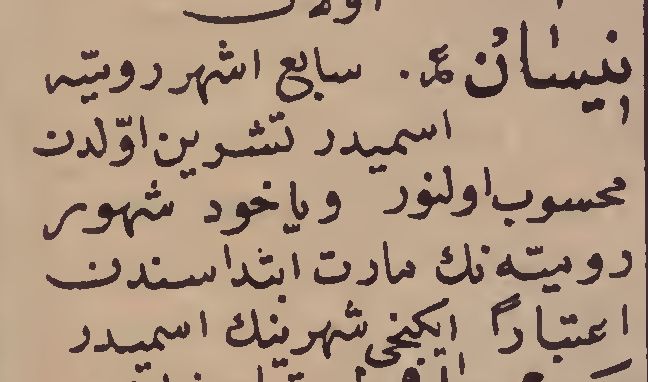 نيسان ع. سابع اشهر روميّه
اسميدر تشرين اوّلدن
محسوب اولنور وياخود شهور
روميّه نك مارت ابتداسندن
اعتباراً ايكنجى شهرينك اسميدر